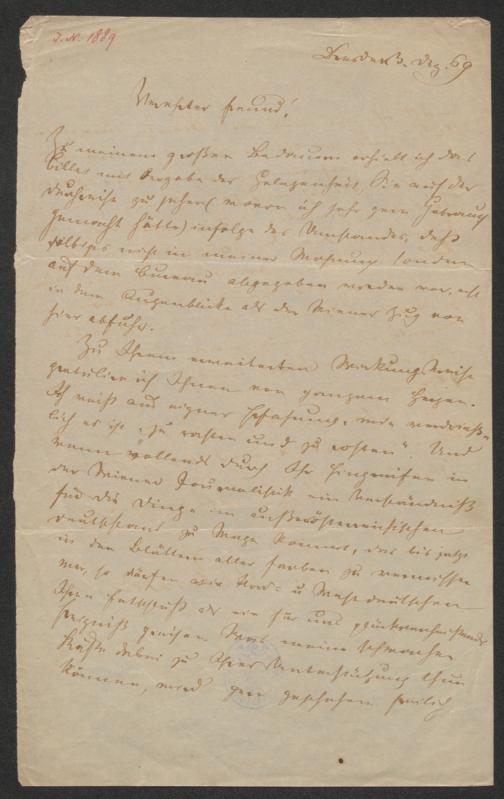 J. N. 1889
Dresden 3. Dez. 69
Verehrter Freund!
Zu meinem großen Bedauern erhielt ich das
Billet mit Angabe der Gelegenheit, Sie auf der
Durchreise zu sehen (wovon ich sehr gern Gebrauch
gemacht hätte) infolge des Umstandes, daß
selbiges nicht in meiner Wohnung sondern
auf dem Bureau abgegeben worden war, erst
in dem Augenblicke als der Wiener Zug von
hier abfuhr.
Zu Ihrem erweiterten Wirkungskreise
gratulire ich Ihnen von ganzem Herzen.
Ich weiß aus eigner Erfahrung, wie verdrieß-
lich es ist, „zu rasten und zu rosten“ Und
wenn vollends durch Ihr Eingreifen in
der Wiener Journalistik ein Verständniß
für die Dinge im außerösterreichischen
Deutschland zu Wege kommt, das bis jetzt
in den Blättern aller Farben zu vermissen
war, so dürfen wir Nord- u Westdeutschen
Ihren Entschluß als ein für uns
Ereigniß preisen Was meine schwachen
Kräfte dabei zu Ihrer Unterstützung thun
können, wird gern geschehen. Freilich